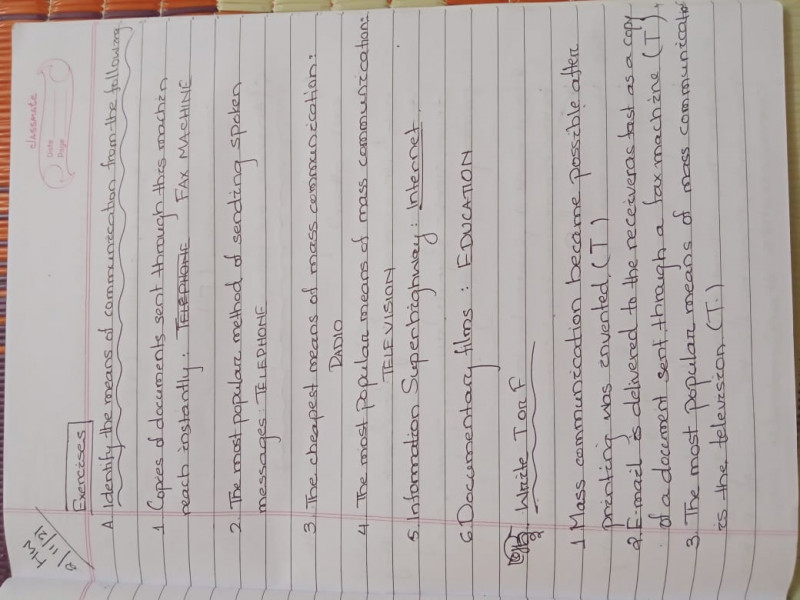 classmate
Date
Page
HW
11/21
Exercises
A. Identify the means of communication from the following
1 Copies of documents sent through this machin
reach instantly: TELEPHONE FAX MACHINE
2. The most popular method of sending spoken
messages: TELEPHONE
3. The cheapest means of mass communication:
RADIO
4. The most Popular means of mass communication:
TELEVISION
5. Information Superhighway: Internet.
6. Documentary films : EDUCATION
Write T or F
1 Mass communication became possible after
printing was envented. (T)
2. E-mail is delivered to the receiver as fast as a copy
of a document sent through a fax machine (T).
3. The most popular means of mass communicatio
is the television (T.)